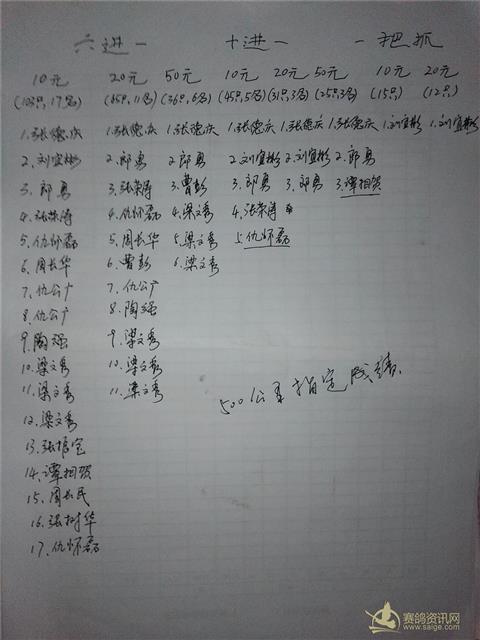 六进一 十进一 一把抓
10元 20元 50元 10元 20元 50元 10元 20元
(103只,17名) (65只,11名) (36只,6名) (45只,5名) (31只,3名) (25只,3名) (15只) (12只)
1.张德庆 1.张德庆 1.张德庆 1.张德庆 1.张德庆 1.张德庆 1.刘宜彬 1.刘宜彬
2.刘宜彬 2.郎勇 2.郎勇 2.刘宜彬 2.刘宜彬 2.郎勇
3.郎勇 3.张荣涛 3.曹彭 3.郎勇 3.郎勇 3.谭相贺
4.张荣涛 4.仇怀磊 4.梁文秀 4.张荣涛
5.仇怀磊 5.周长华 5.梁文秀 5.仇怀磊
6.周长华 6.曹彭 6.梁文秀
7.仇公广 7.仇公广
8.仇公广 8.陶强
9.陶强 9.梁文秀
10.梁文秀 10.梁文秀
11.梁文秀 11.梁文秀
500公里指定成绩.
12.梁文秀
13.张 宝
14.谭相贺
15.周长民
16.张树华
17.仇怀磊
赛鸽资讯网
www.saige.com